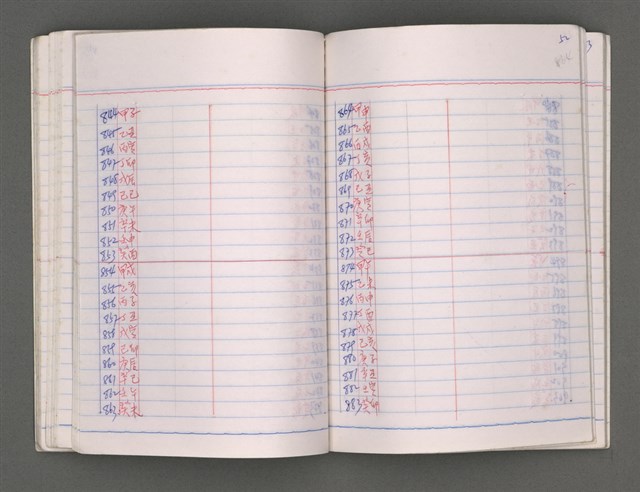 844 甲子
845 乙丑
846 丙寅
847 丁卯
848 戊辰
849 己巳
850 庚午
851 辛未
852 壬申
853 癸酉
854 甲戌
855 乙亥
856 丙子
857 丁丑
858 戊寅
859 己卯
860 庚辰
861 辛巳
862 壬午
863 癸未
52
864 甲申
865 乙酉
866 丙戌
867 丁亥
868 戊子
869 己丑
870 庚寅
871 辛卯
872 壬辰
873 癸巳
874 甲午
875 乙未
876 丙申
877 丁酉
878 戊戌
879 己亥
880 庚子
881 辛丑
882 壬寅
883 癸卯